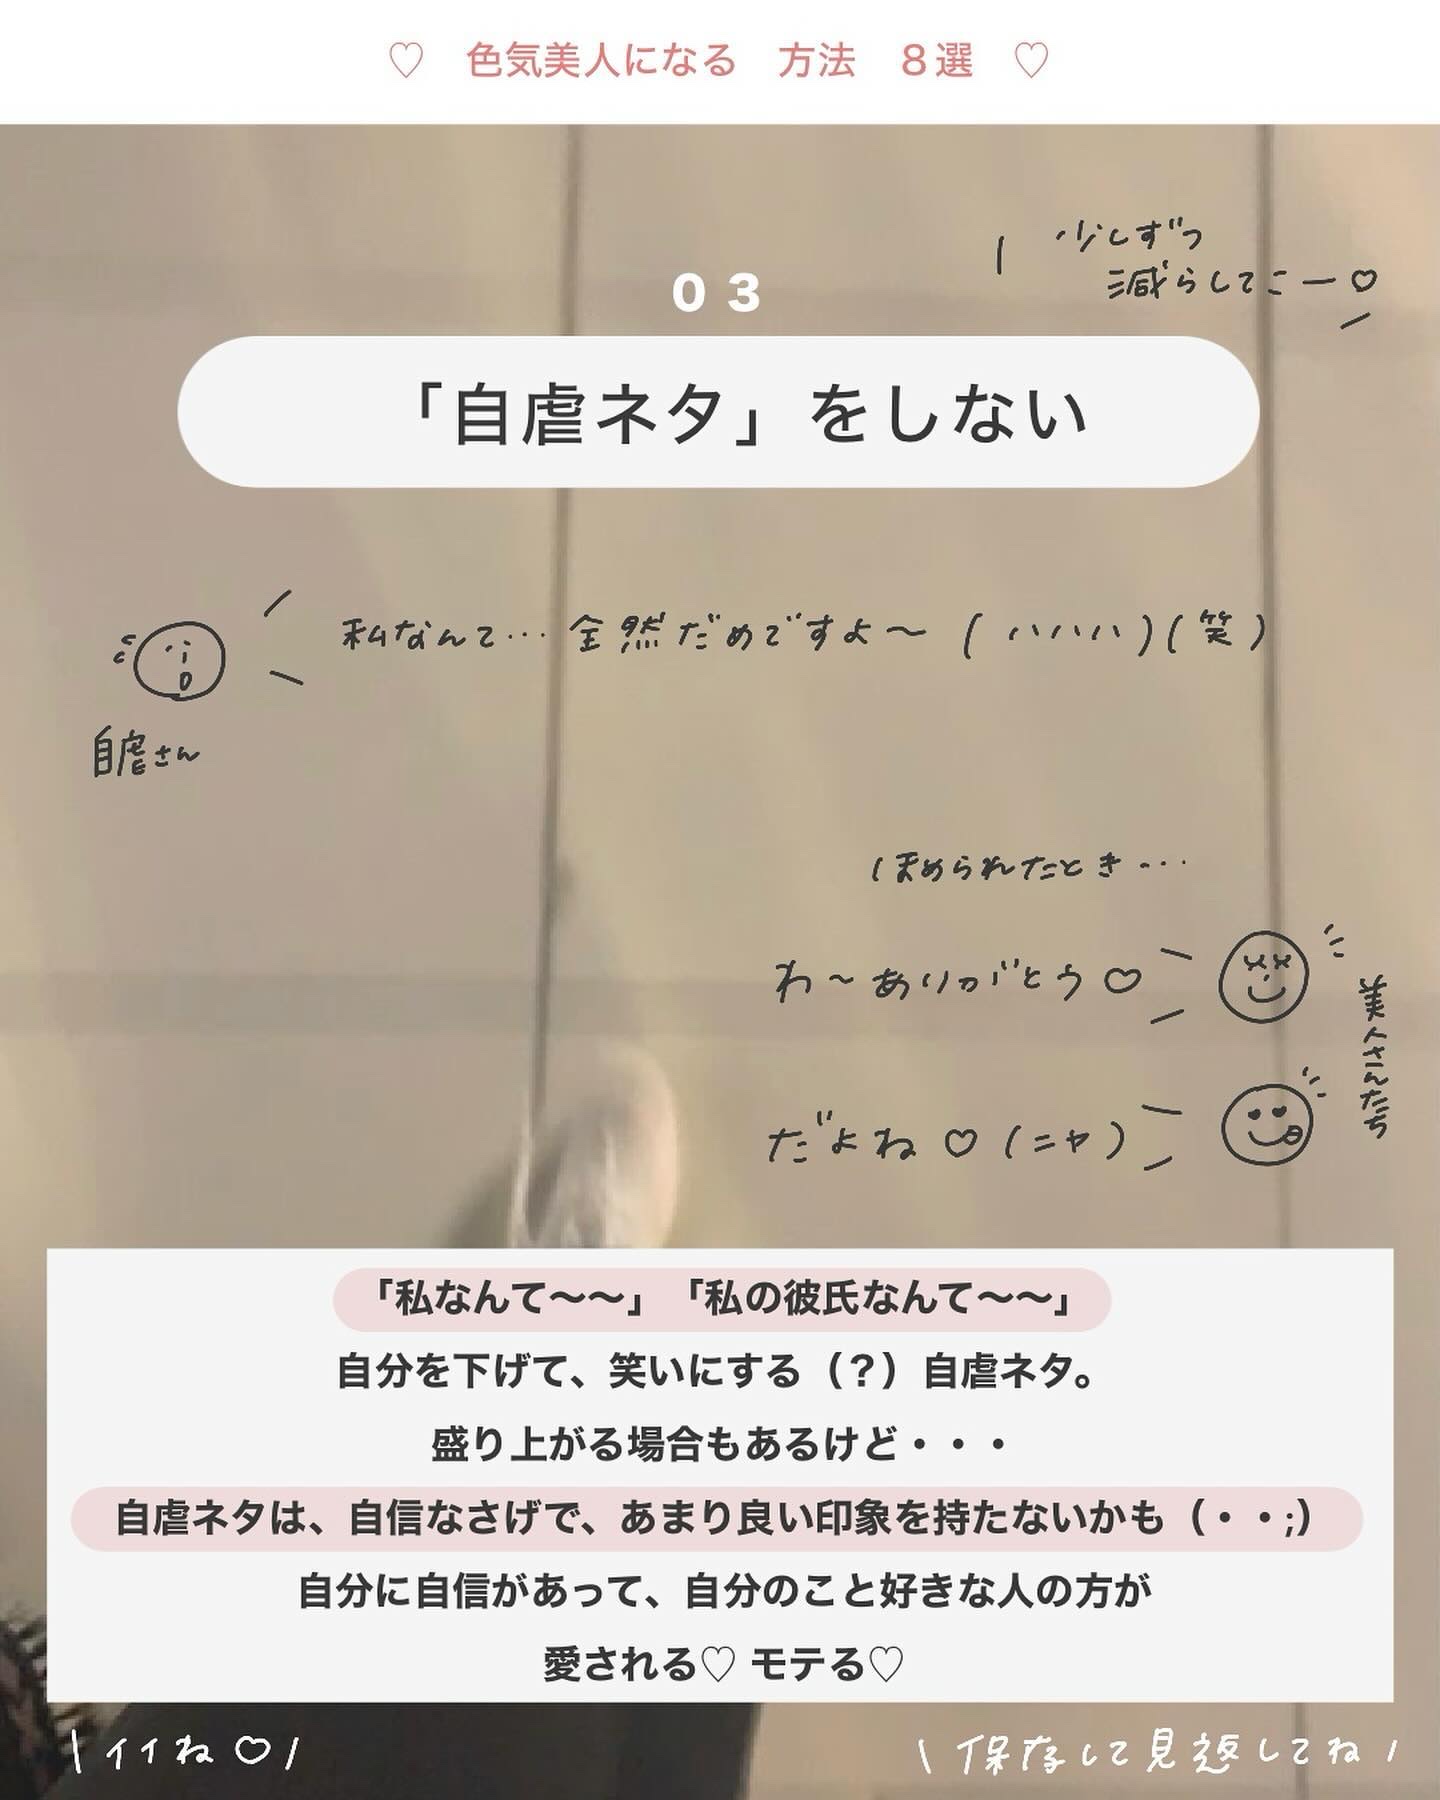 ♡ 色気美人になる 方法 8選 ♡
少しずつ
減らしてこー♡
03
「自虐ネタ」をしない
私なんて… 全然だめですよ〜 (ハハハ)(笑)
自虐さん
ほめられたとき…
わ〜ありがとう♡
美人さんたち
だよね♡(ニヤ)
「私なんて〜〜」「私の彼氏なんて〜〜」
自分を下げて、笑いにする（？）自虐ネタ。
盛り上がる場合もあるけど・・・
自虐ネタは、自信なさげで、あまり良い印象を持たないかも（・・;）
自分に自信があって、自分のこと好きな人の方が
愛される♡ モテる♡
\ イイね♡ /
\ 保存して見返してね /